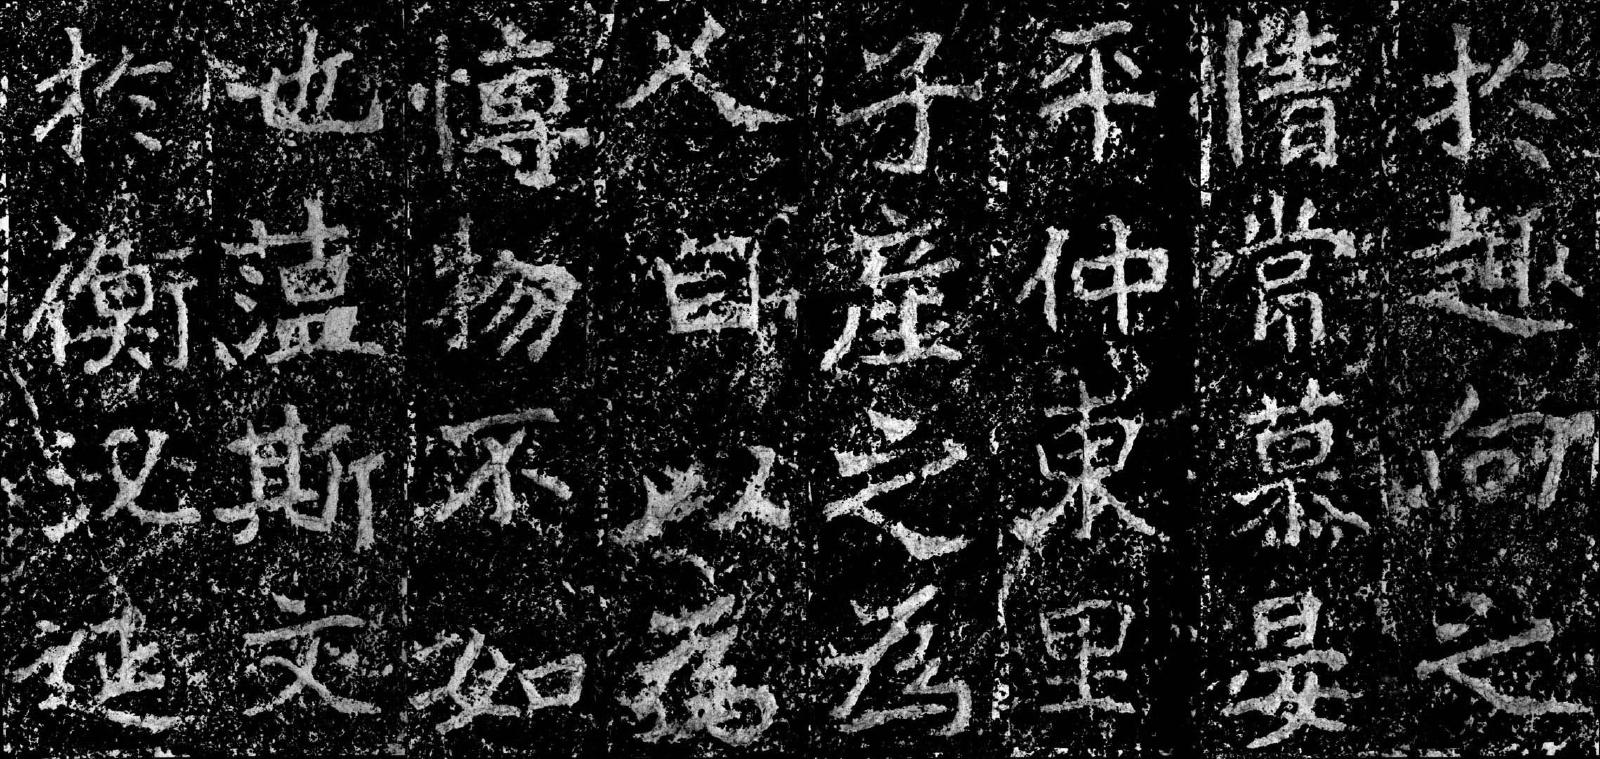 於趣向之
情常慕晏
平仲東里
子產之為
人自以為
愽物不如
也蕰斯文
於衡泌延